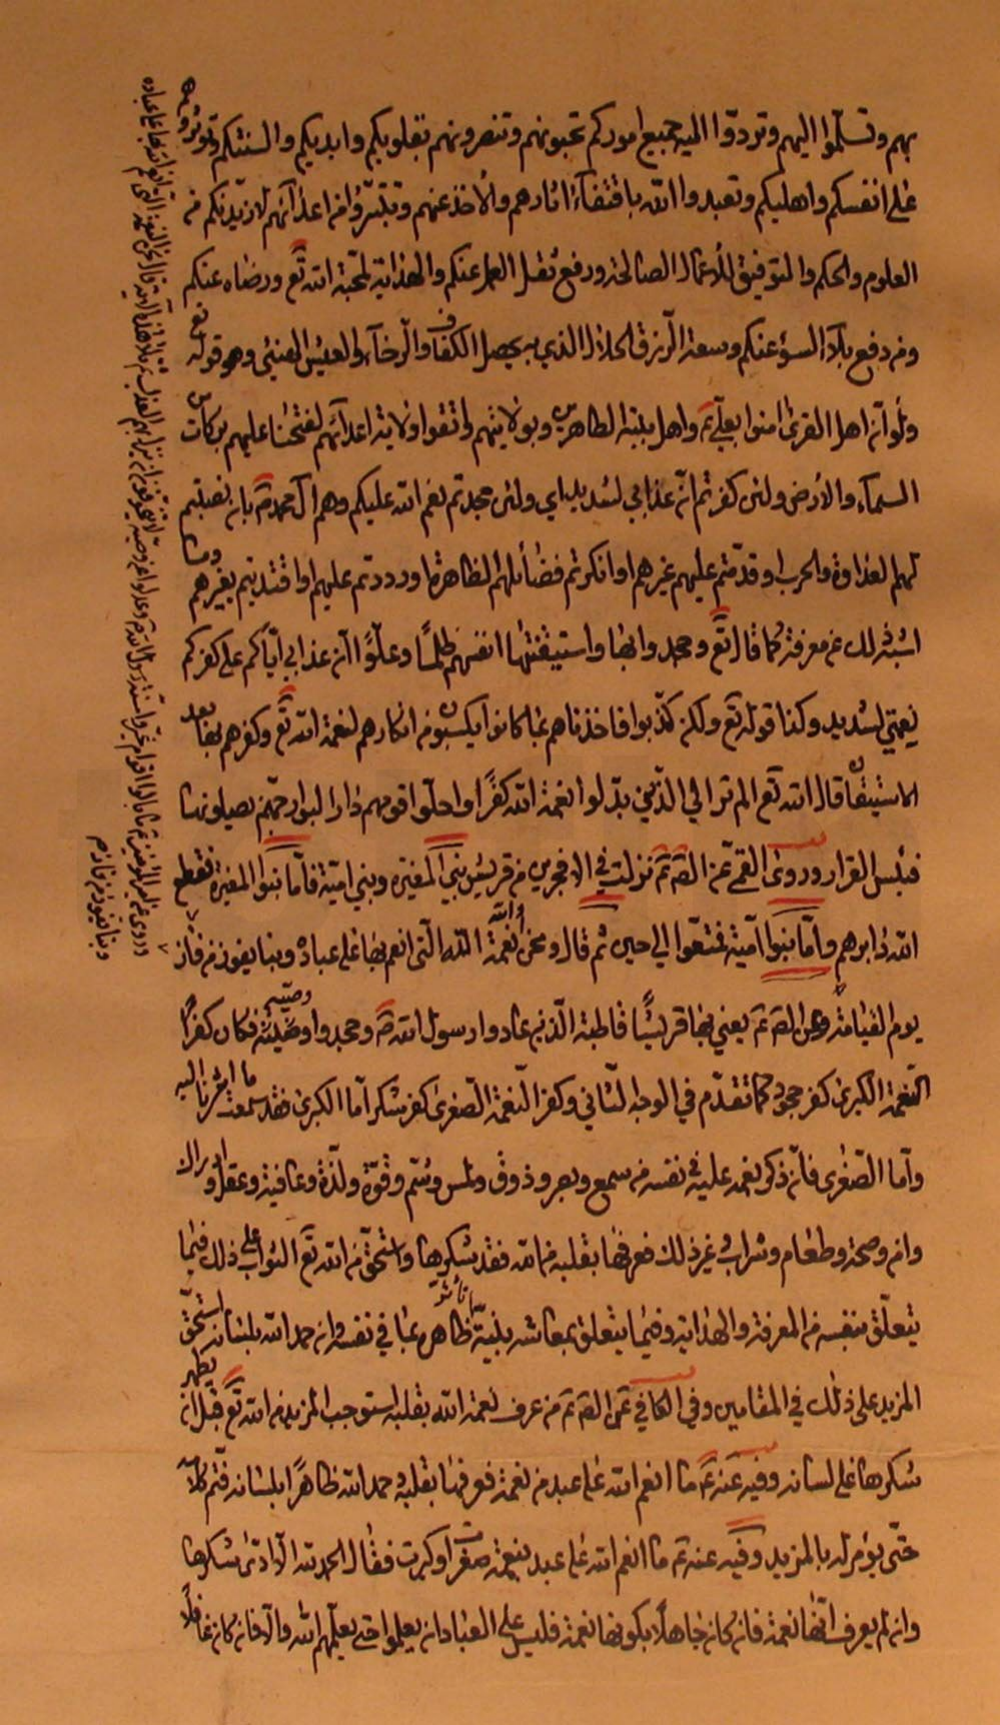 بهم وتسلّموا اليهم وتردّوا اليه جميع اموركم تحبونهم وتنصرونهم بقلوبكم وايديكم والسنتكم وتؤثروهم
على انفسكم واهليكم وتعبدوا الله باقتفاء اثارهم والاخذ عنهم وتتبرّؤا من اعدائهم لازيدنكم من
العلوم والحكم والتوفيق للاعمال الصالحة ورفع ثقل العمل عنكم والهداية لمحبة الله تع ورضاه عنكم
ومن دفع بلاء السوء عنكم وسعة الرزق الحلال الذي به يحصل الكفاف والرخاء والعيش الهنيئ وهو قوله تع
ولو انّ اهل القرى امنوا بعليّ ع واهل بيته الطاهرين وبولايتهم واتقوا ولاية اعدائهم لفتحنا عليهم بركات من
السماء والارض ولئن كفرتم انّ عذابي لشديد اي ولئن جحدتم نعم الله عليكم وهم ال محمد ص بان نصبتم
لهم العداوة والحرب او قدّمتم عليهم غيرهم او انكرتم فضائلهم الظاهرة او رددتم عليهم او اقتديتم بغيرهم وما
اشبه ذلك عن معرفة كما قال تع وجحدوا بها واستيقنتها انفسهم ظلمًا وعلوًّا انّ عذابي اياكم على كفركم
نعمتي لشديد وكذا قوله تع ولكن كذّبوا فاخذناهم بما كانوا يكسبون من انكارهم لنعمة الله تع وكفرهم بها بعد
الاستيقان قال الله تع الم تر الى الذين بدّلوا نعمة الله كفرًا واحلّوا قومهم دار البوار جهنّم يصلونها
فبئس القرار وروى القمي عن الص ع نزلت في الافجرين من قريش بني المغيرة وبني اميّة فامّا بنوا المغيرة فقطع
الله دابرهم وامّا بنوا اميّة فمتّعوا الى حين ثم قال ونحن والله نعمة الله التي انعم بها على عباده وبنا يفوز من فاز
يوم القيامة وعن الص ع يعني بها قريشًا قاطبة الذين عادوا رسول الله ص وجحدوا وصيّه فكان كفر
النّعمة الكبرى كفر جحود كما تقدّم في الوجه الثاني وكفر النّعمة الصّغرى كفر شكر امّا الكبرى فقد سمعت ما اشرنا اليه
وامّا الصّغرى فانّه ذكر نعمه عليه في نفسه من سمع وبصر وذوق ولمس وشم وقوّة ولذّة وعافية وعقل وادراك
وامن وصحة وطعام وشراب وغير ذلك فعرفها بقلبه من الله فقد شكرها واستحقّ من الله تع الثواب على ذلك فيما
يتعلّق بنفسه من المعرفة والهداية وفيما يتعلق بمعاشه بنيّة ظاهره بما في نفسه وان حمد الله بلسانه استحقّ
المزيد على ذلك في المقامين وفي الكافي عن الص ع من عرف نعمة الله بقلبه استوجب المزيد من الله تع قبل ان يظهر
شكرها على لسانه وفيه عنه ع ما انعم الله على عبد من نعمة فعرفها بقلبه وحمد الله ظاهرًا بلسانه فتم كلامه
حتّى يؤمر له بالمزيد وفيه عنه ع ما انعم الله على عبد بنعمة صغرت او كبرت فقال الحمد لله الا ادّى شكرها
وان لم يعرف انّها نعمة فان كان جاهلًا بكونها نعمة فليس على العباد ان يعلموا حتى يعلّمهم الله والا فان كان غافلًا